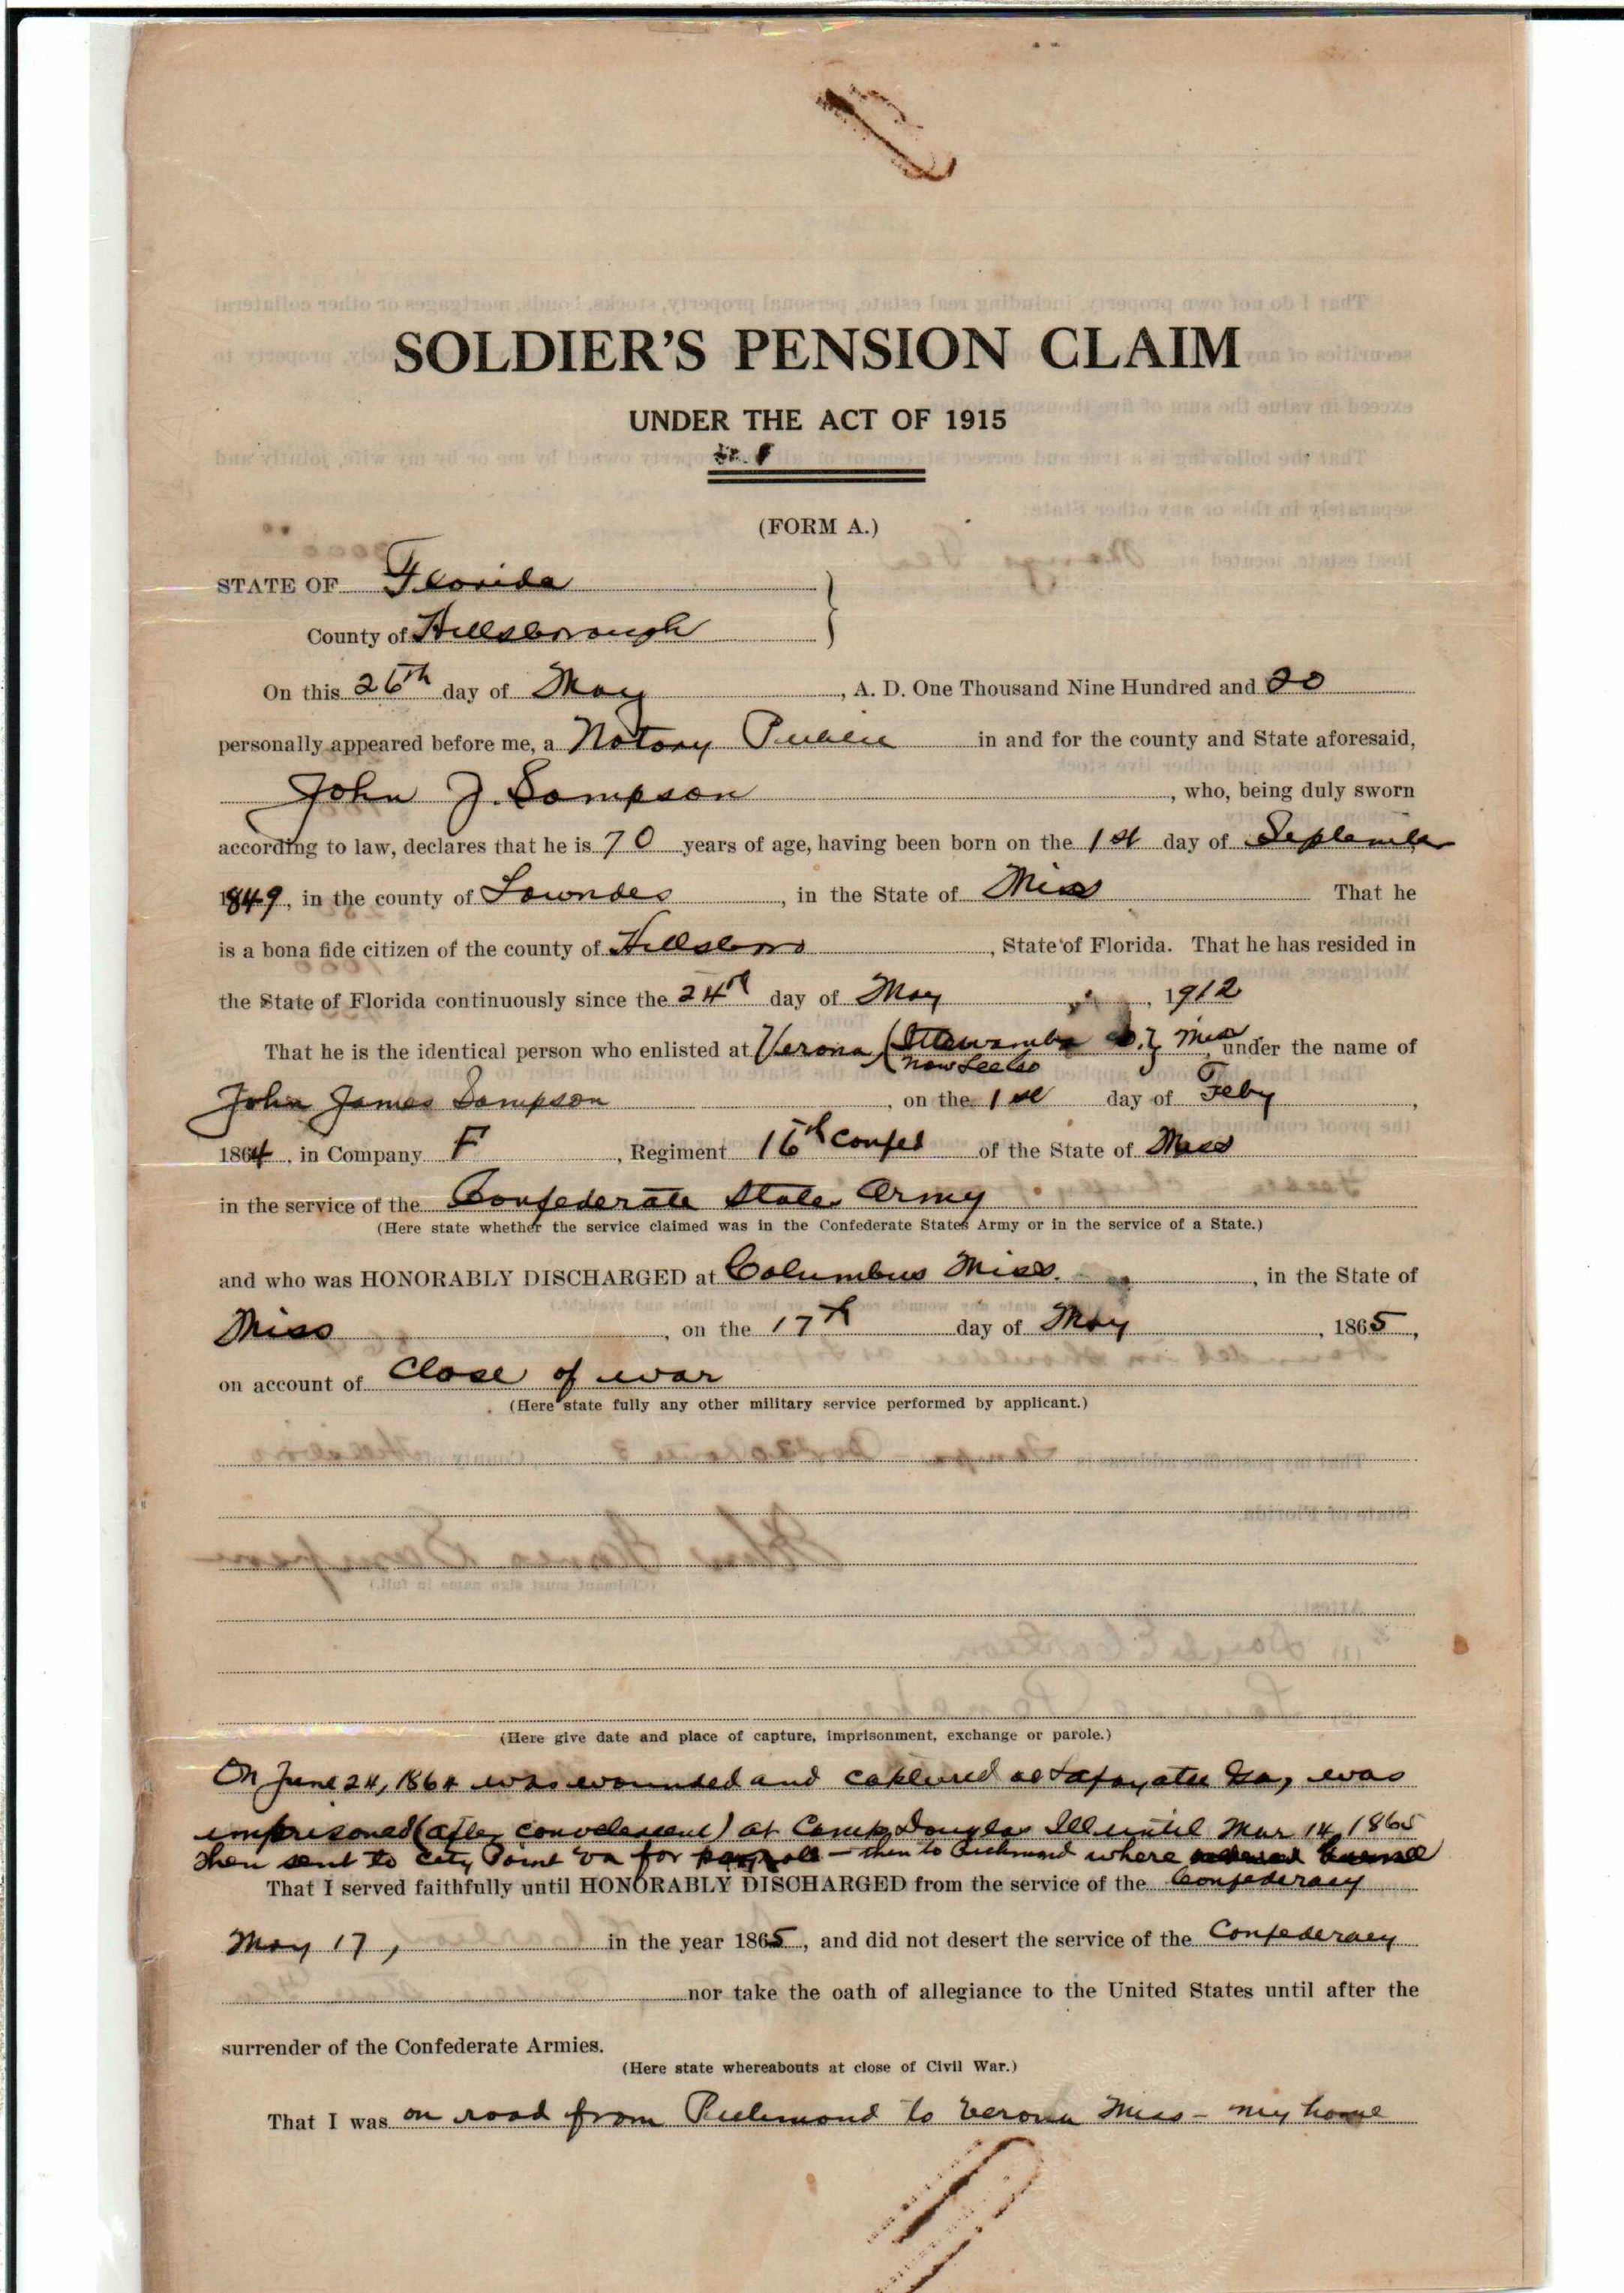 SOLDIER'S PENSION CLAIM
UNDER THE ACT OF 1915
(FORM A.)
STATE OF Florida
County of Hillsborough
On this 26th day of May, A. D. One Thousand Nine Hundred and 20
personally appeared before me, a Notary Public in and for the county and State aforesaid,
John J. Sampson, who, being duly sworn
according to law, declares that he is 70 years of age, having been born on the 1st day of September
1849, in the county of Lowndes, in the State of Miss That he
is a bona fide citizen of the county of Hillsboro, State of Florida. That he has resided in
the State of Florida continuously since the 24th day of May, 1912
That he is the identical person who enlisted at Verona (Ittawamba Miss, under the name of
now Lee Co
John James Sampson, on the 1st day of Feby,
1864, in Company F, Regiment 16th Confed of the State of Miss
in the service of the Confederate States Army
(Here state whether the service claimed was in the Confederate States Army or in the service of a State.)
and who was HONORABLY DISCHARGED at Columbus Miss., in the State of
Miss, on the 17th day of May, 1865,
on account of Close of war
(Here state fully any other military service performed by applicant.)
(Here give date and place of capture, imprisonment, exchange or parole.)
On June 24, 1864 was wounded and captured at Lafayatte Ga, was
imprisoned (after convelescent) at Camp Douglas Ill until Mar 14, 1865
then sent to City Point Va for – then to Richmond where
That I served faithfully until HONORABLY DISCHARGED from the service of the Confederacy
May 17, in the year 1865, and did not desert the service of the Confederacy
nor take the oath of allegiance to the United States until after the
surrender of the Confederate Armies.
(Here state whereabouts at close of Civil War.)
That I was on road from Richmond to Verona Miss – my home